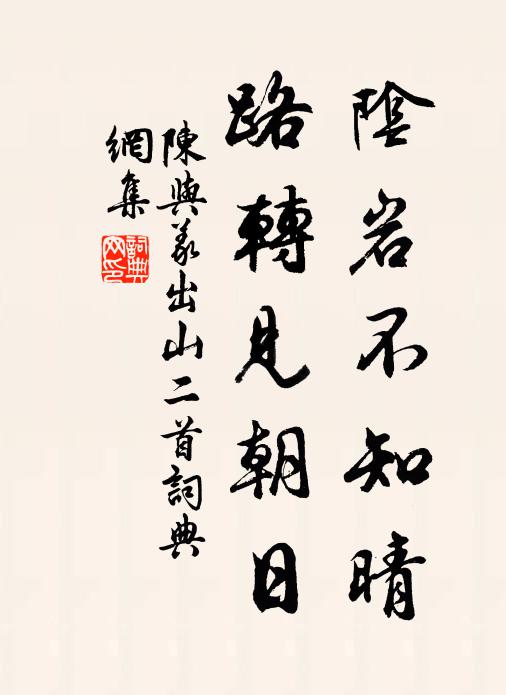 陰岩不知晴
路轉見朝日
陳與義出山二首詞典
網集
詞典
网印